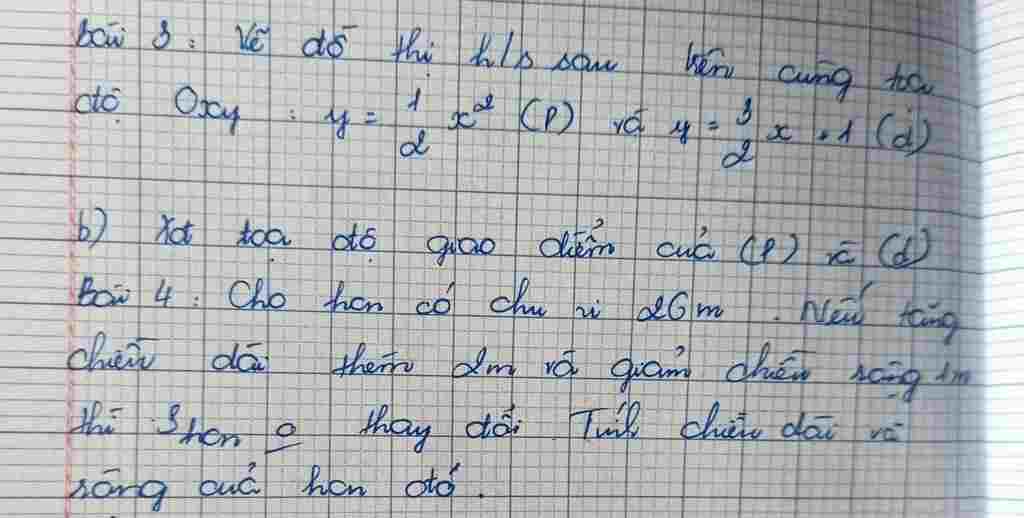 Bài 3 : Vẽ đồ thị h/s sau trên cùng tọa
độ Oxy : y = 1/2 x² (P) và y = 3/2 x + 1 (d)
b) Xđ tọa độ giao điểm của (P) và (d)
Bài 4 : Cho hcn có chu vi 26m . Nếu tăng
chiều dài thêm 2m và giảm chiều rộng 1m
thì Shcn o thay đổi. Tính chiều dài và
rộng của hcn đó.